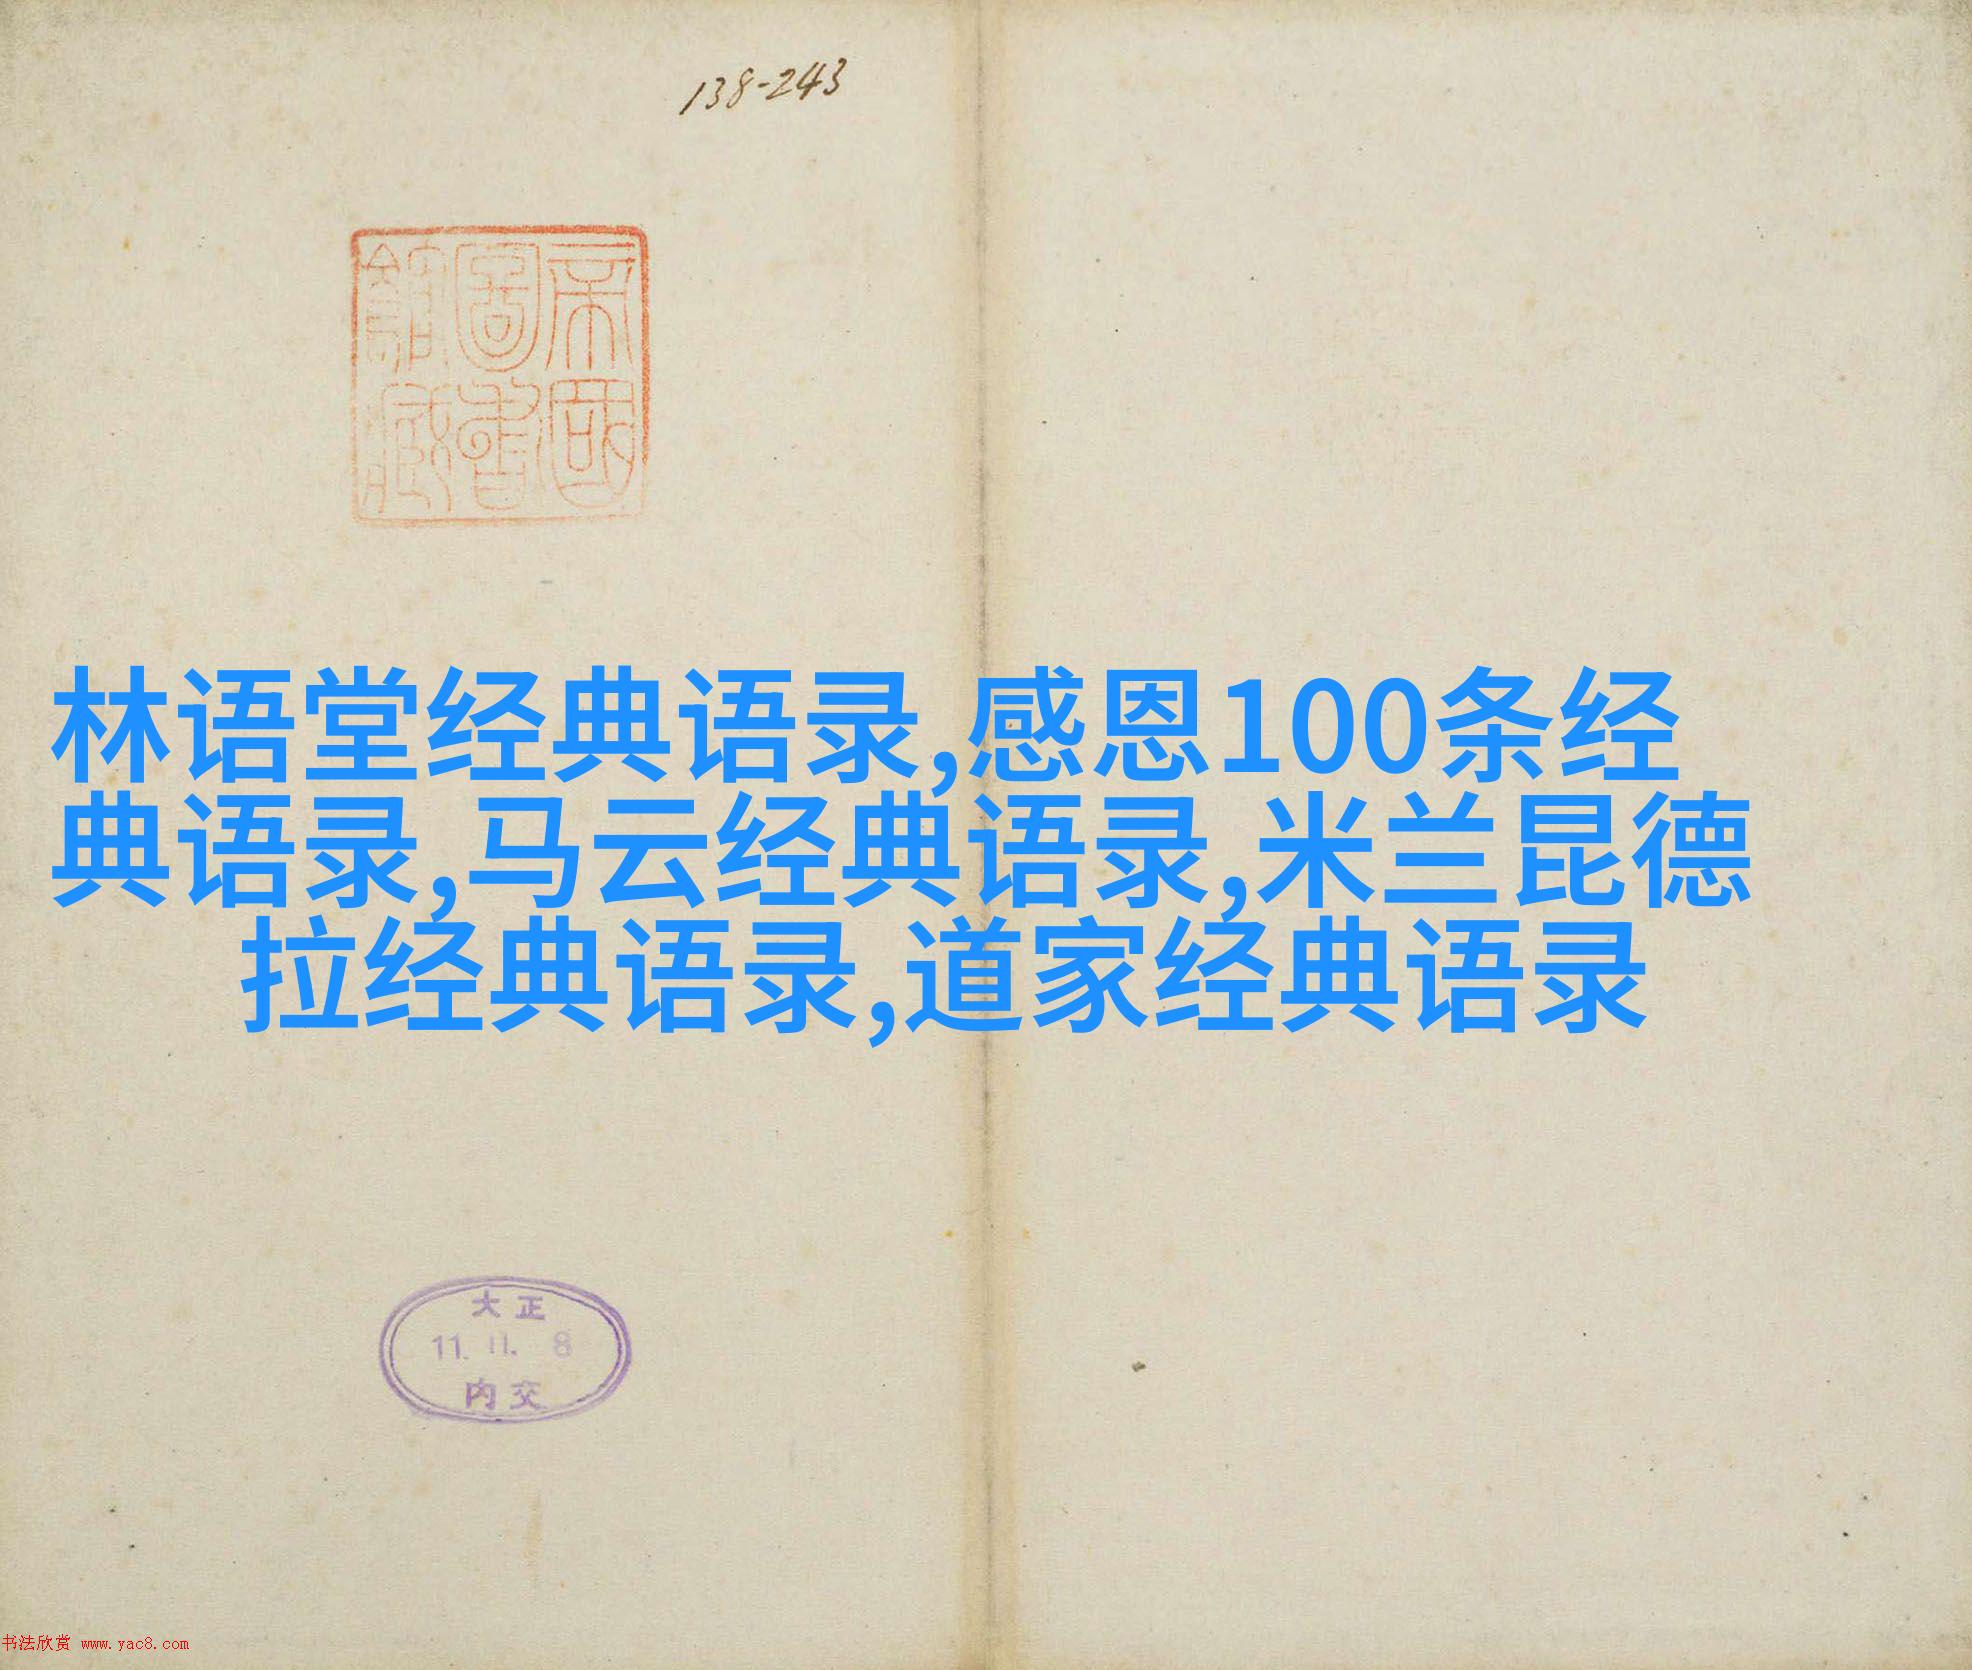 138-243
帝國
圖書
館藏
林语堂经典语录,感恩100条经
典语录,马云经典语录,米兰昆德
拉经典语录,道家经典语录
大正
11.11.8
内交
书法欣赏 www.yac8.com